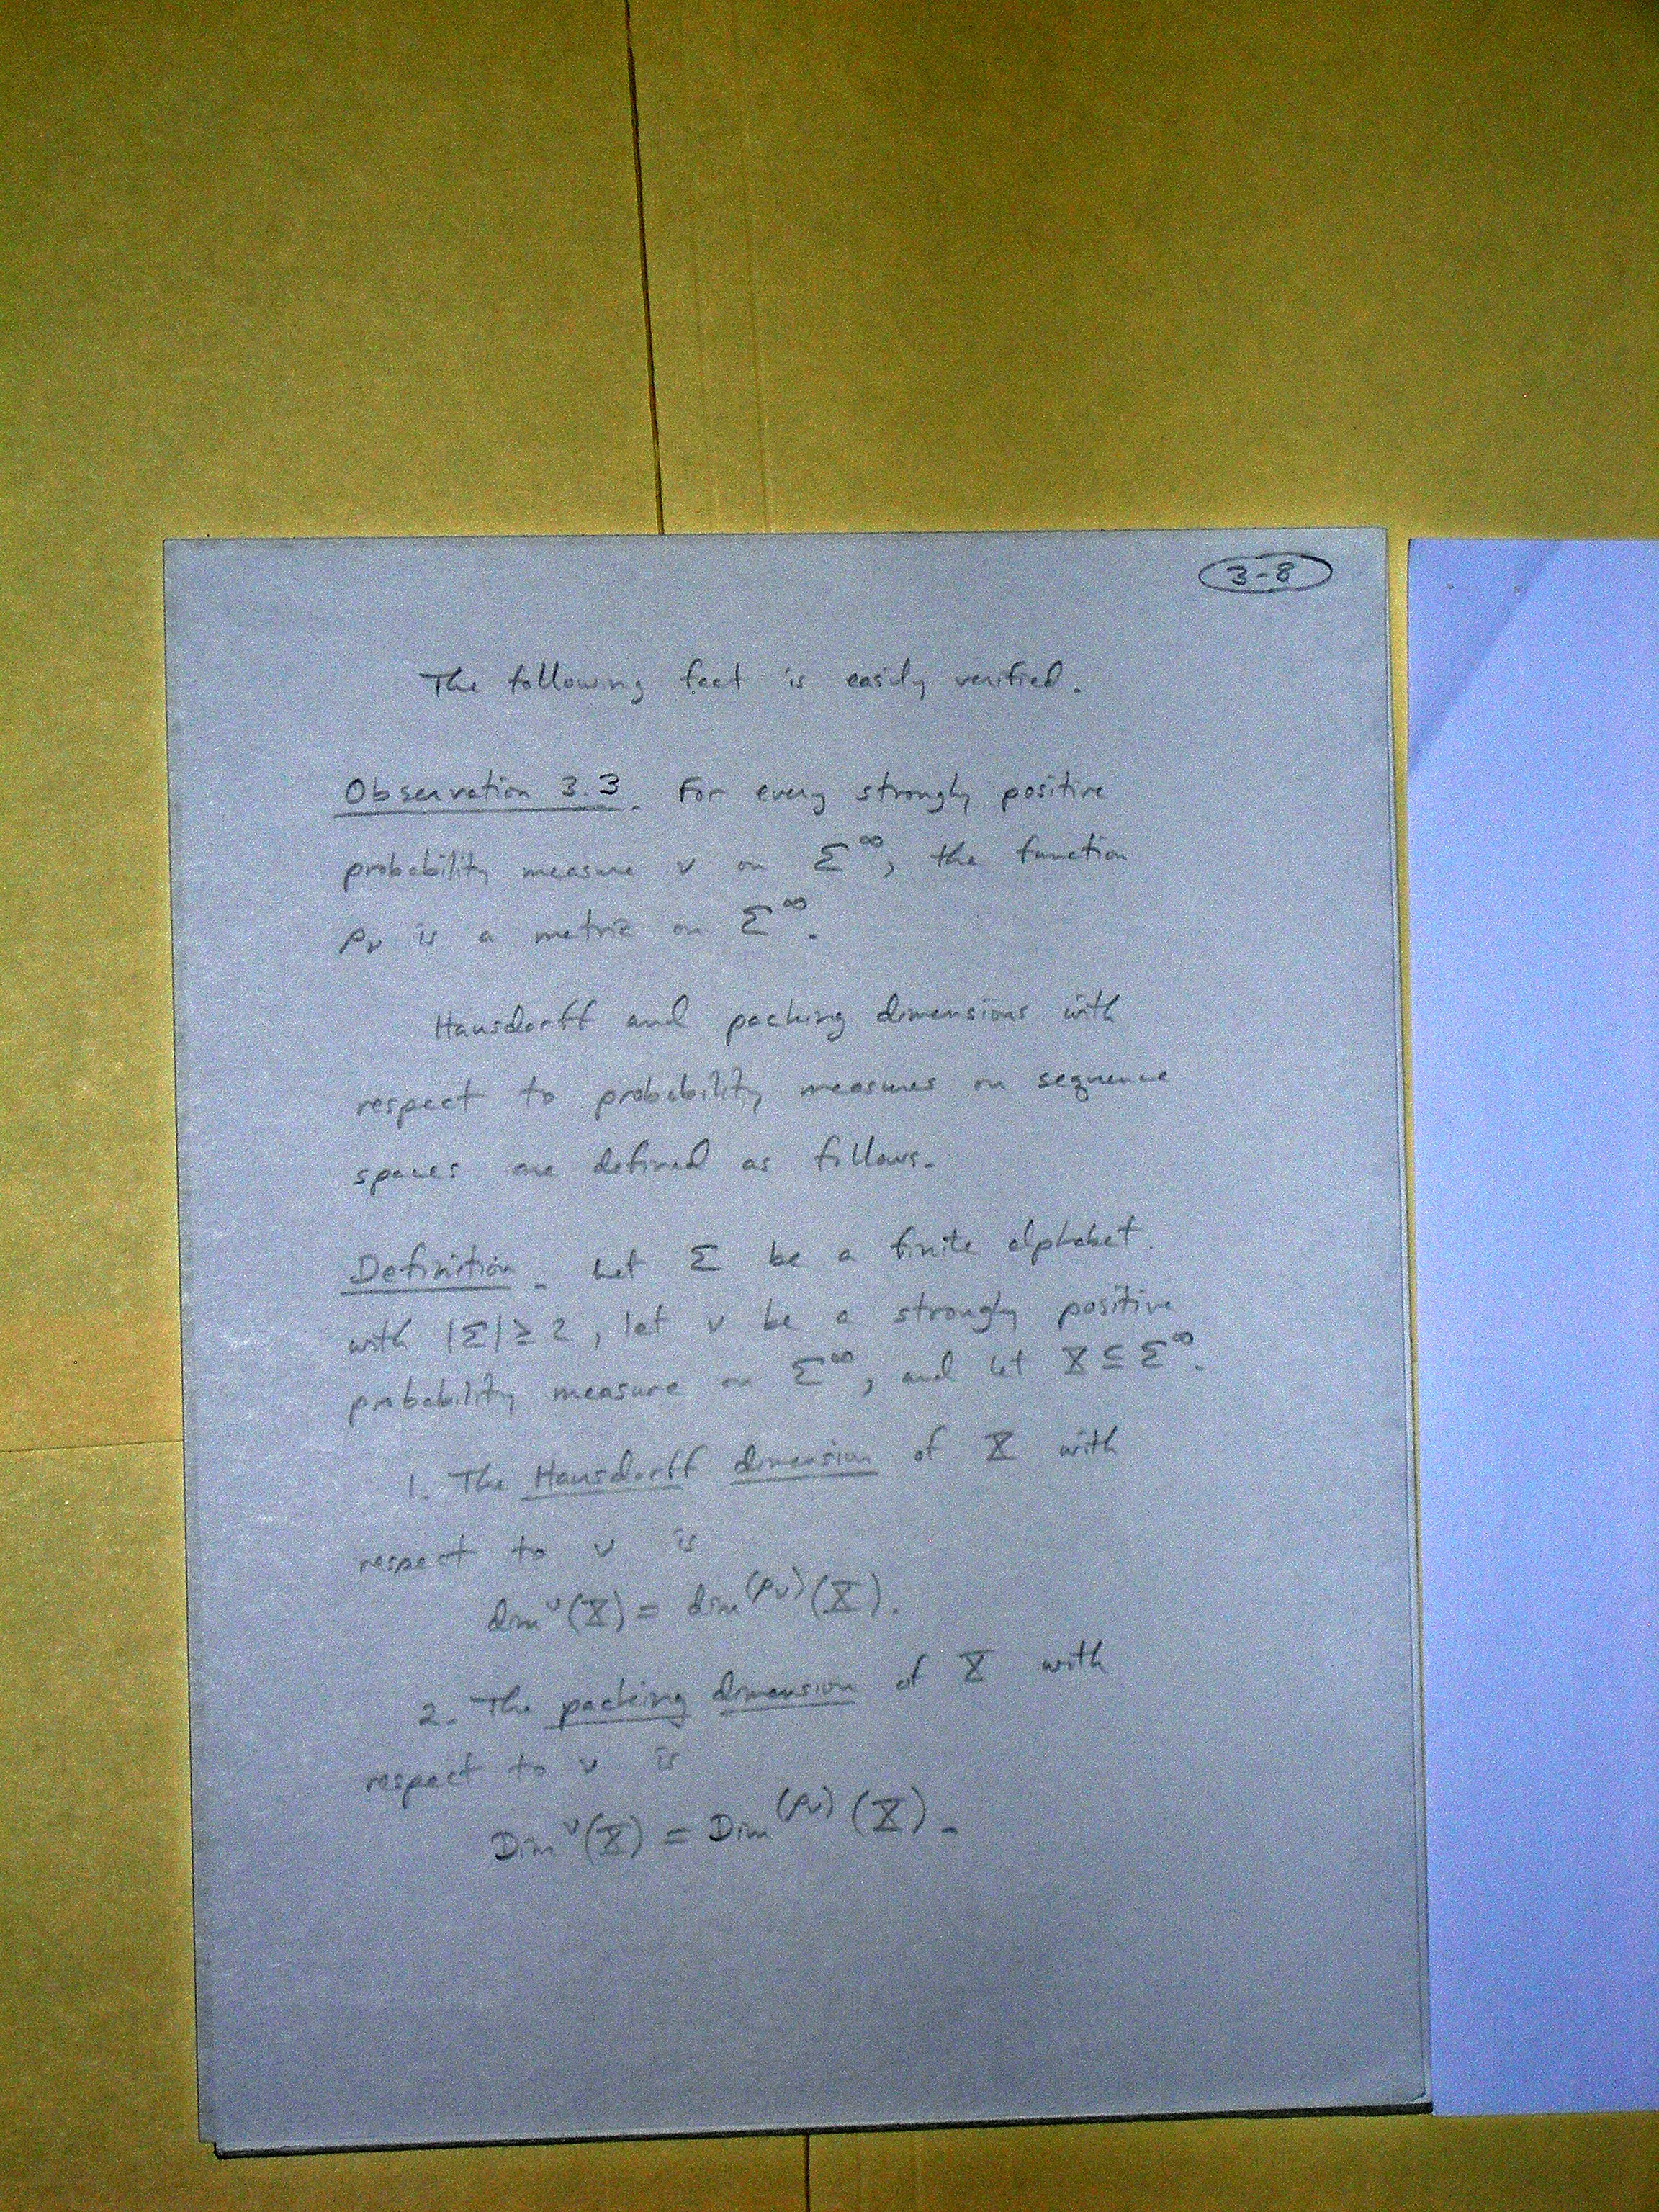 3-8
The following fact is easily verified.
Observation 3.3. For every strongly positive
probability measure ν on Σ^∞, the function
ρ_ν is a metric on Σ^∞.
Hausdorff and packing dimensions with
respect to probability measures on sequence
spaces are defined as follows.
Definition. Let Σ be a finite alphabet
with |Σ| ≥ 2, let ν be a strongly positive
probability measure on Σ^∞, and let X ⊆ Σ^∞.
1. The Hausdorff dimension of X with
respect to ν is
dim^ν(X) = dim^(ρ_ν)(X).
2. The packing dimension of X with
respect to ν is
Dim^ν(X) = Dim^(ρ_ν)(X).